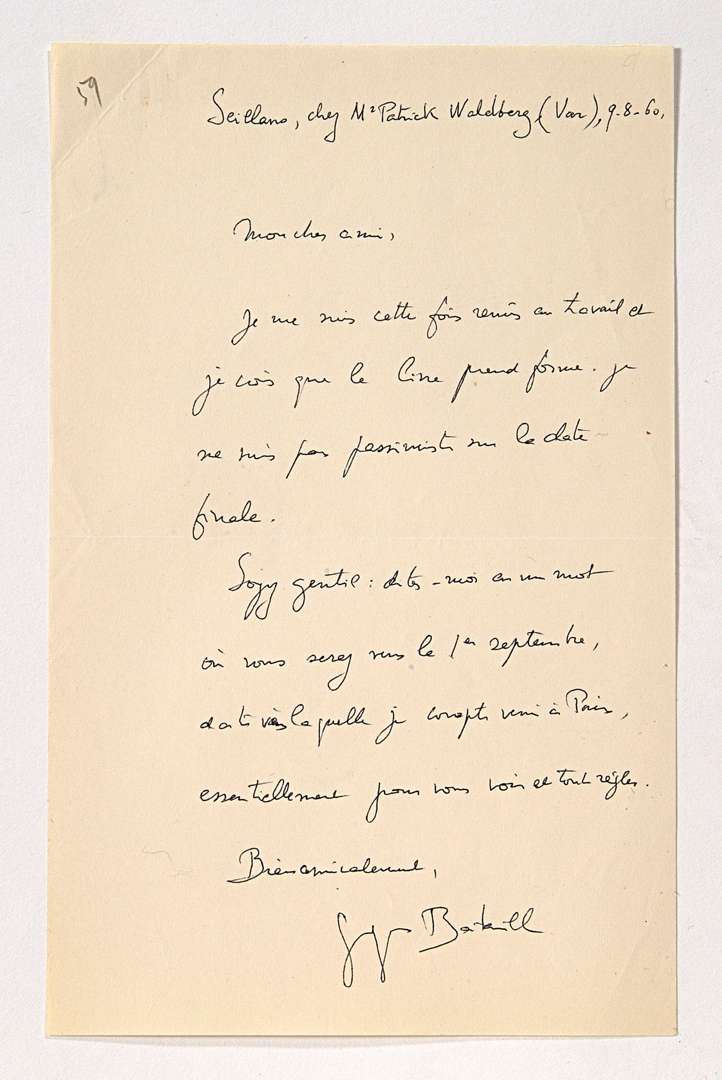 59
Seillans, chez Mr Patrick Waldberg (Var), 9-8-60,
Mon cher ami,
Je me suis cette fois remis au travail et
je vois que le livre prend forme. Je
ne suis pas pessimiste sur la date
finale.
Soyez gentil : dites-moi en un mot
où vous serez vers le 1er septembre,
date vers laquelle je compte venir à Paris,
essentiellement pour vous voir et tout régler.
Bien amicalement,
Georges Bataille